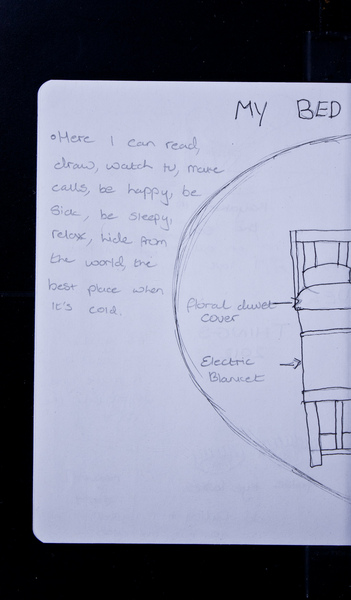 MY BED
•Here I can read,
draw, watch tv, make
calls, be happy, be
Sick, be sleepy,
relax, hide from
the world, the
best place when
it's cold.
floral duvet
cover
Electric
Blanket